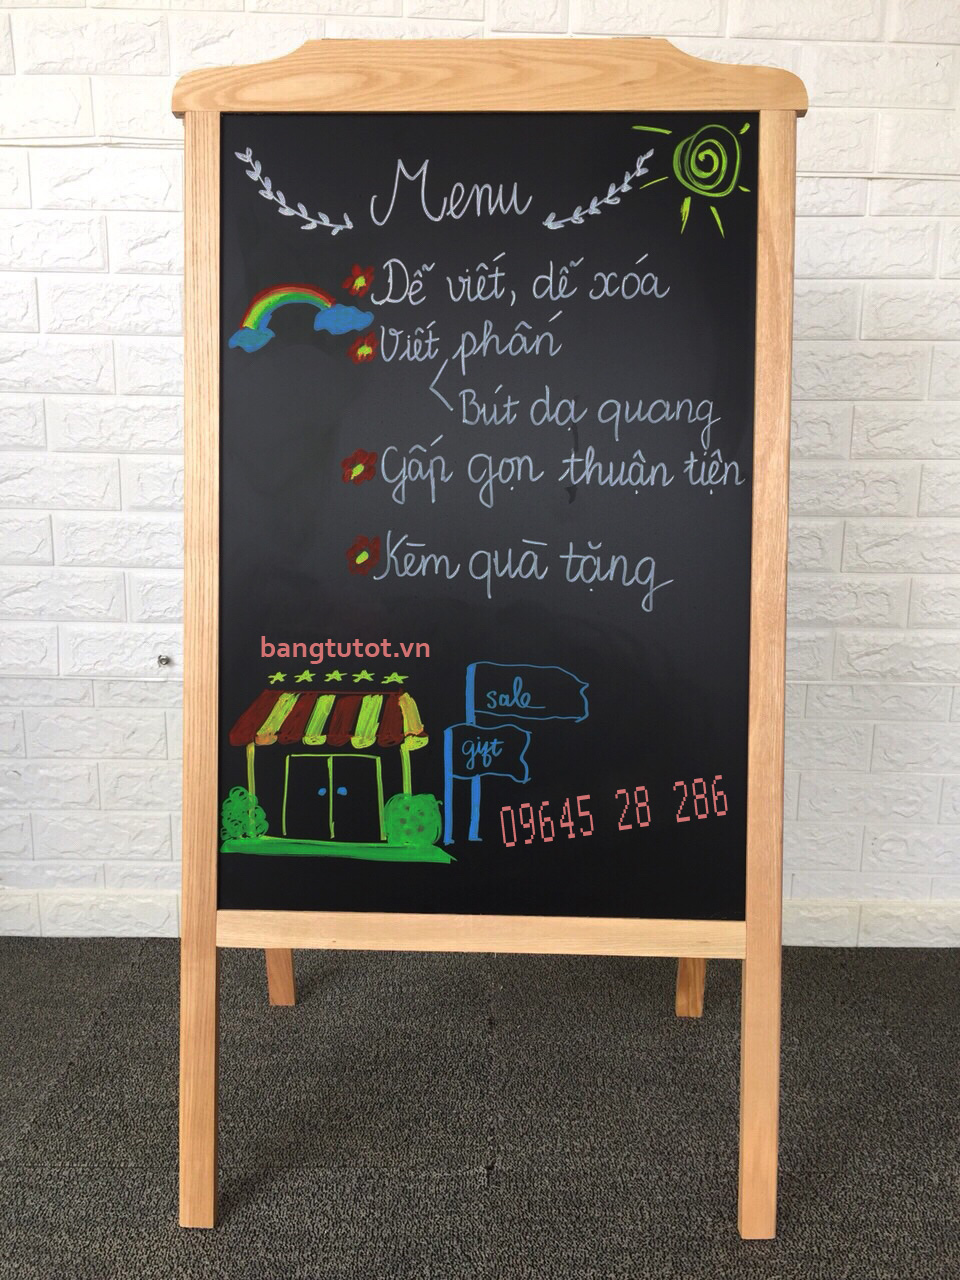 Menu
Dễ viết, dễ xóa
Viết phấn
Bút dạ quang
Gấp gọn thuận tiện
Kèm quà tặng
bangtutot.vn
sale
gift
09645 28 286